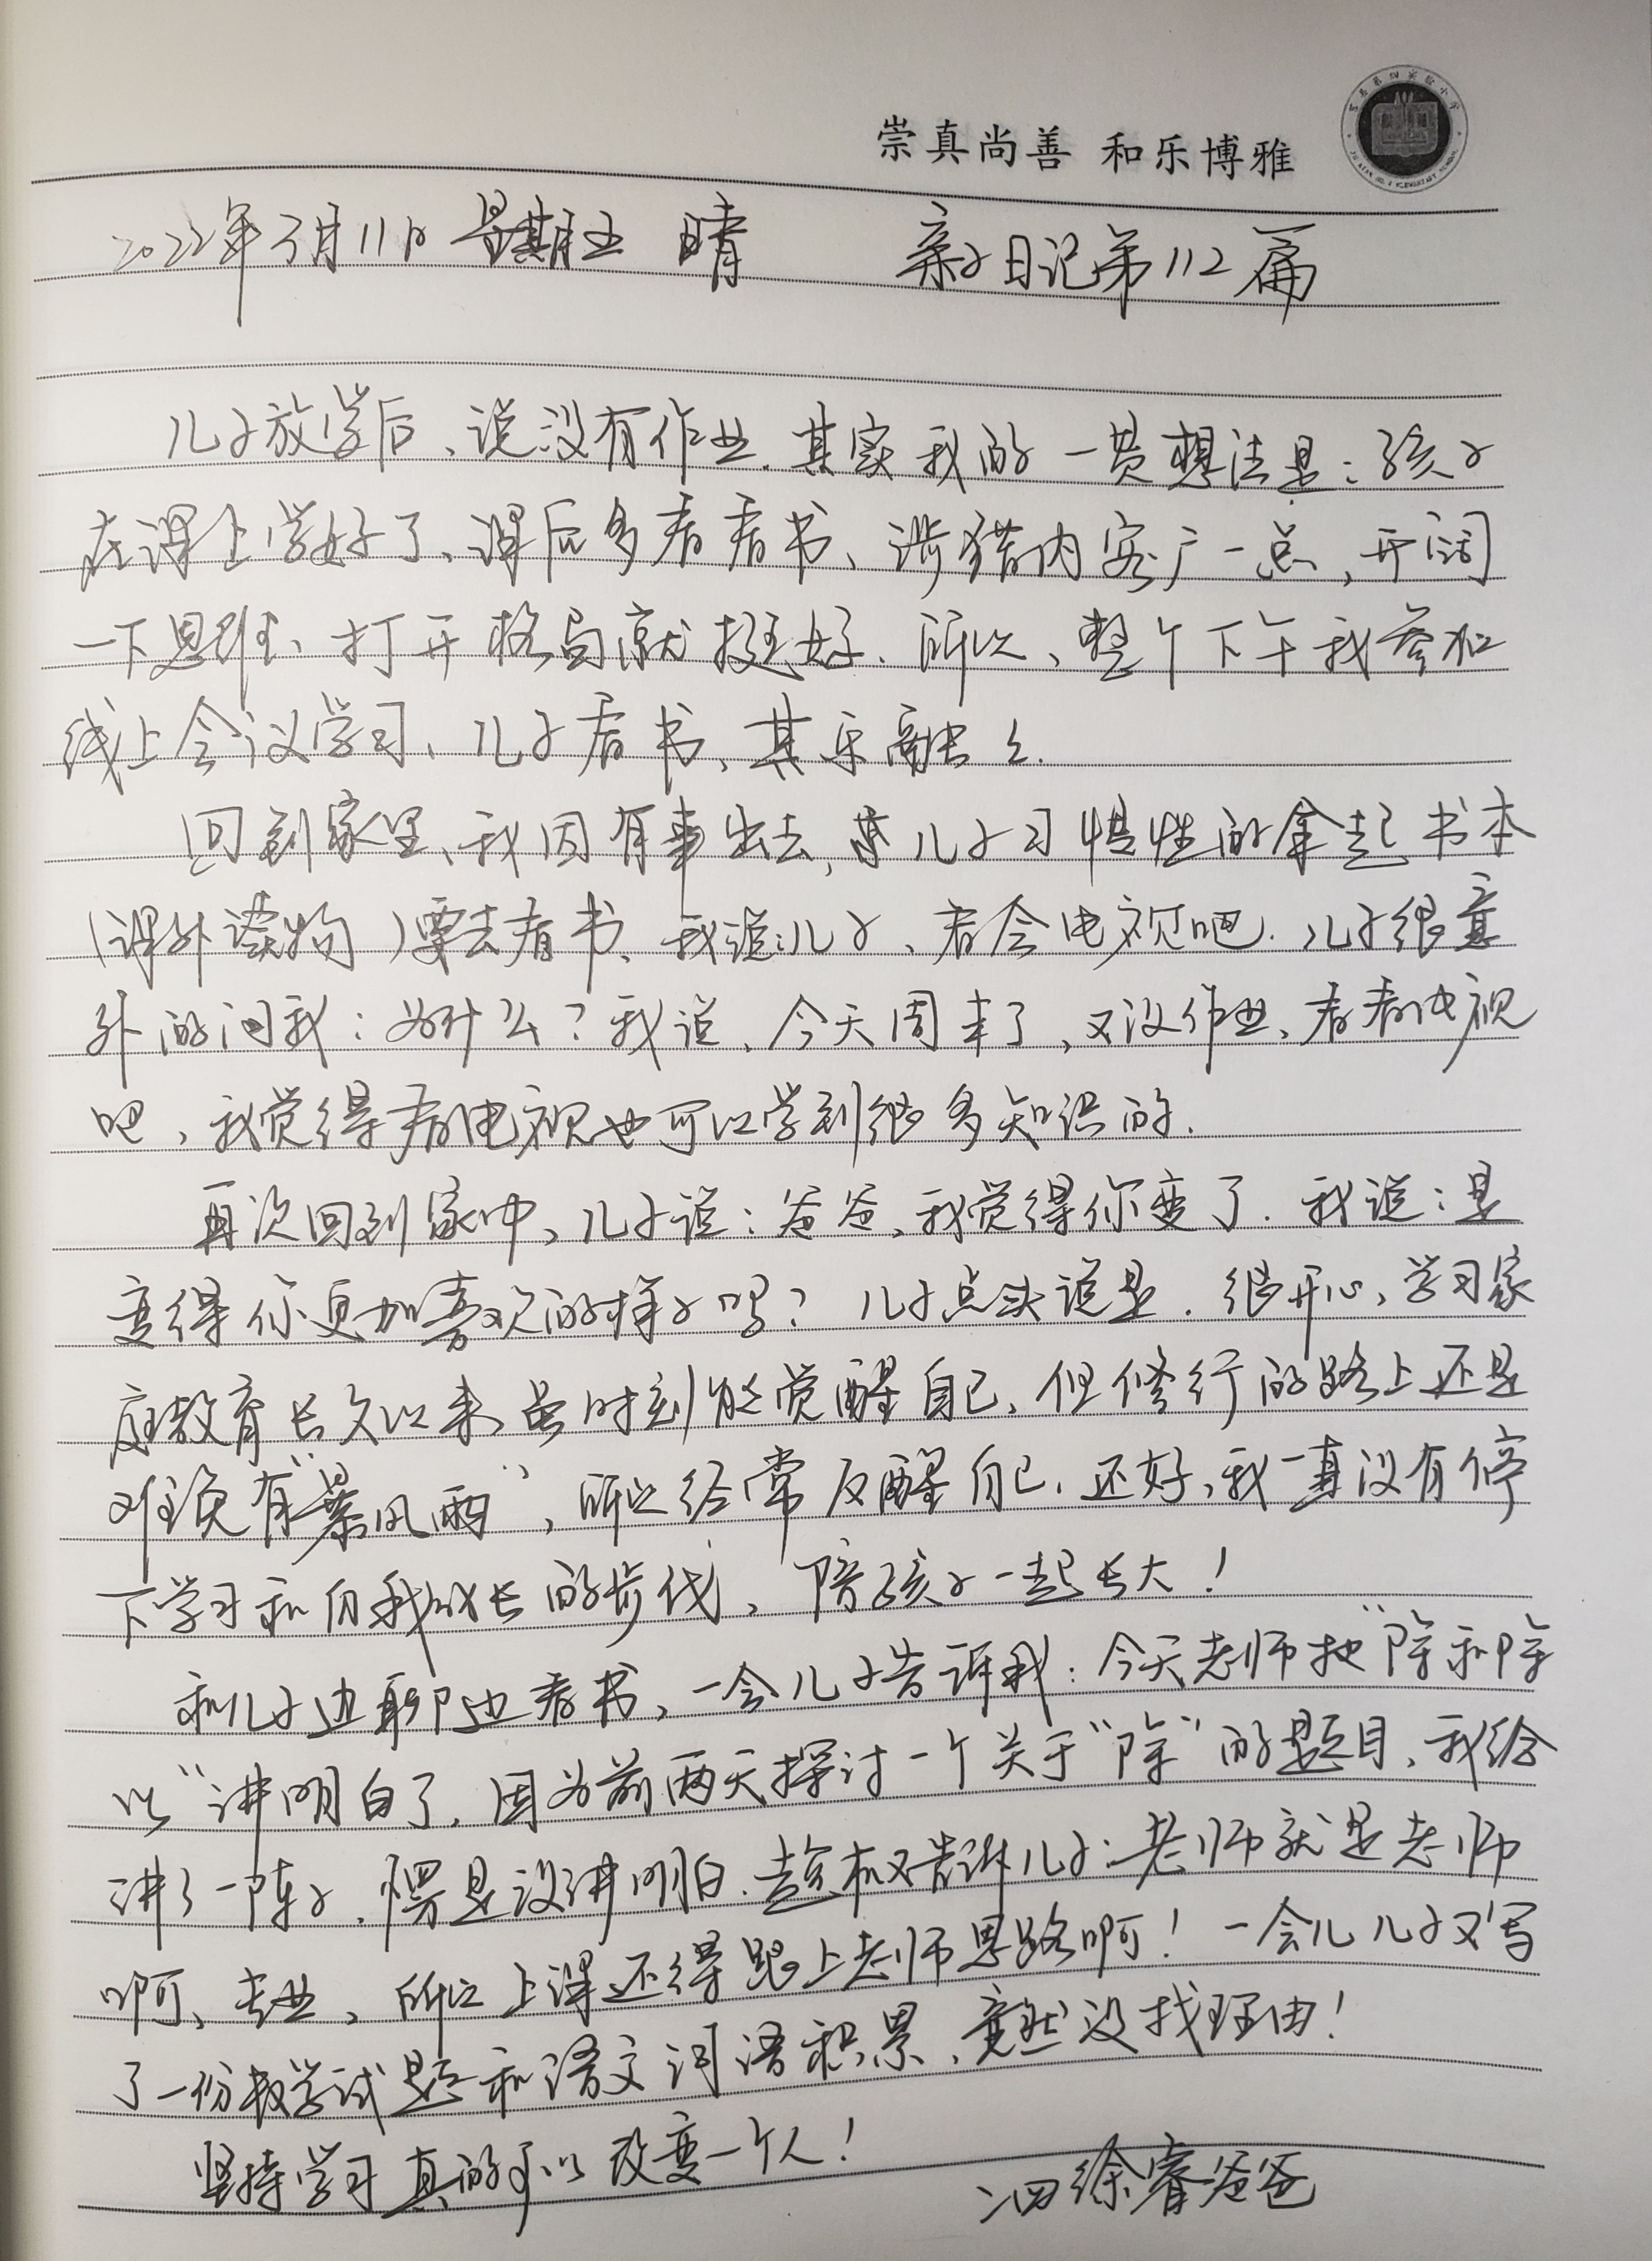 崇真尚善 和乐博雅
2022年3月11日 星期五 晴 亲子日记第112篇
儿子放学后、说没有作业.其实我的一贯想法是:孩子
在课上学好了、课后多看看书、涉猎内容广一点,开阔
一下思维、打开格局就挺好.所以、整个下午我参加
线上会议学习、儿子看书、其乐融々.
回到家里、我因有事出去,儿子习惯性的拿起书本
(课外读物)要去看书、我说:儿子、看会电视吧.儿子很意
外的问我:为什么?我说、今天周末了,又没作业、看看电视
吧,我觉得看电视也可以学到很多知识的.
再次回到家中、儿子说:爸爸、我觉得你变了.我说:是
变得你更加喜欢的样子吗?儿子点头说是.很开心、学习家
庭教育长久以来虽时刻能觉醒自己、但修行的路上还是
难免有“暴风雨”,所以经常反醒自己.还好,我一直没有停
下学习和自我成长的步伐,陪孩子一起长大!
和儿子边聊边看书,一会儿子告诉我:今天老师把“除和除
以”讲明白了.因为前两天探讨一个关于“除”的题目、我给
讲了一阵子.愣是没讲明白.趁机又告诉儿子:老师就是老师
啊、专业,所以上课还得跟上老师思路啊!一会儿儿子又写
了一份数学试题和语文词语积累、竟然没找理由!
坚持学习真的可以改变一个人!
二四徐睿爸爸